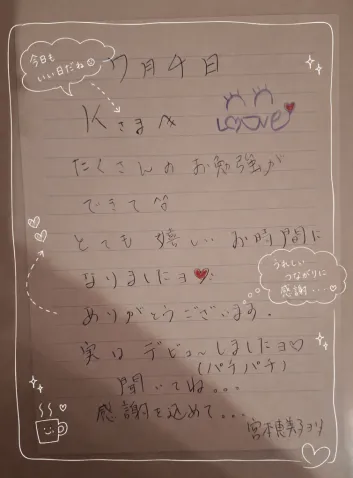 今日も
いい日だね☺
7月4日
Kさま
Love
たくさんのお勉強が
できて
とても 嬉しい お時間に
なりましたョ❤
うれしい
つながりに
感謝...♡
ありがとうございます.
実は デビューしましたョ♡
(パチパチ)
聞いてね...
感謝を込めて...